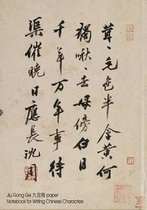 茸々毛色半含黄何
獨啾々去母傍白日
千年万年事待
渠催曉日應長沈周
Jiu Gong Ge 九宫格 paper
Notebook for Writing Chinese Characters